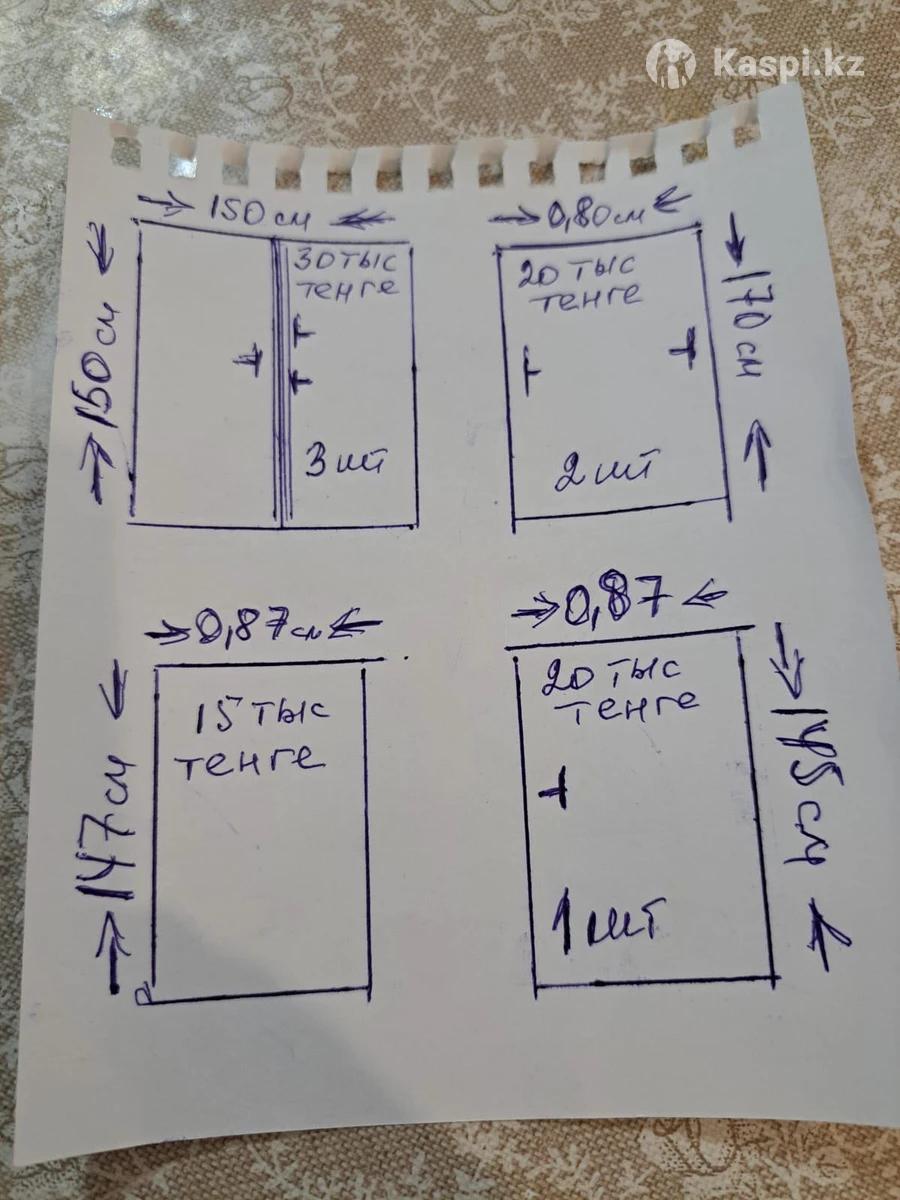 Kaspi.kz
150 см
0,80 см
150 см
30 тыс
тенге
3 шт
20 тыс
тенге
2 шт
170 см
0,87 см
0,87
147 см
15 тыс
тенге
20 тыс
тенге
1 шт